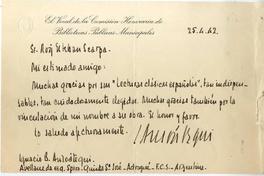 El Vocal de la Comisión Honoraria de
Bibliotecas Públicas Municipales
25.4.62
Sr. Roq Esteban Scarpa.
Mi estimado amigo:
Muchas gracias por sus "Lecturas clásicas españolas", tan indispen-
sables, tan cuidadosamente elegidas. Muchas gracias también por la
vinculación de mi nombre a su obra. El honor y favor.
Lo saluda afectuosamente.
Ignacio B. Anzoátegui
Avellaneda esq. Spiro - Quinta Sta. José - Adrogué - F.C.S. - Argentina.